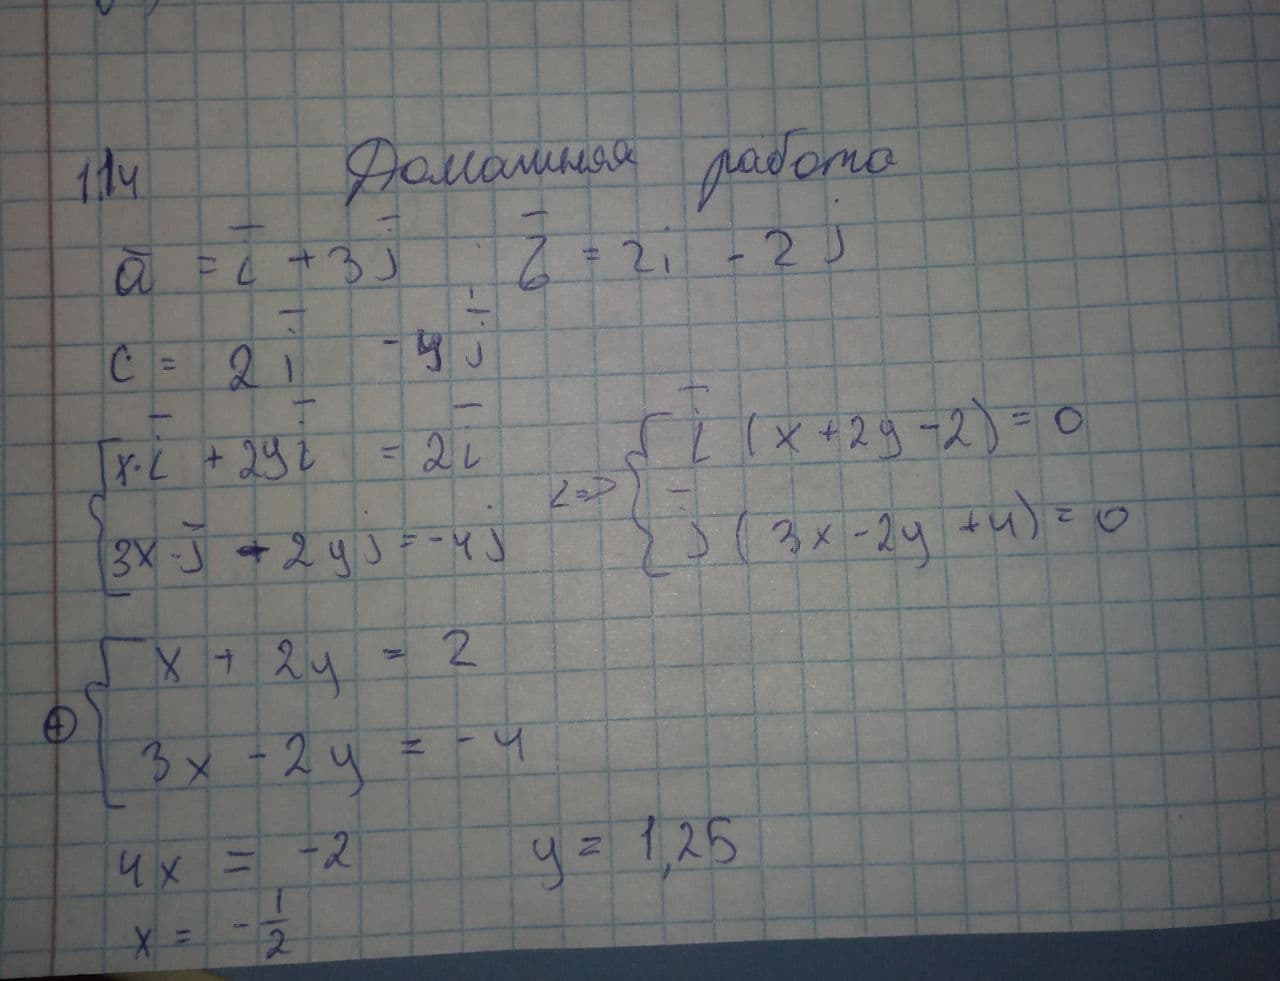 114 Домашняя работа
ā = i̅ + 3j̅ b̅ = 2i - 2j
c = 2i̅ - 4j̅
{ x·i̅ + 2yi̅ = 2i̅ <=> { i̅ (x + 2y - 2) = 0
3x·j̅ - 2yj = -4j j̅ (3x - 2y + 4) = 0
{ x + 2y = 2
⊕ 3x - 2y = -4
4x = -2 y = 1,25
x = -1/2